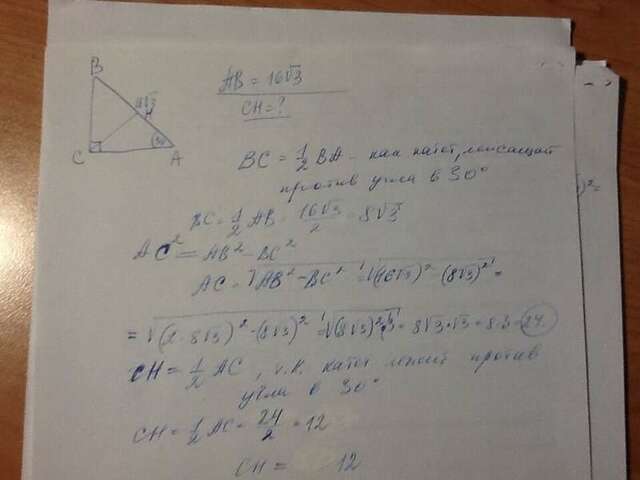 B
16√3
H
C
30°
A
AB = 16√3
CH = ?
BC = 1/2 BA - как катет, лежащий
против угла в 30°
BC = 1/2 AB = 16√3/2 = 8√3
AC² = AB² - BC²
AC = √AB² - BC² = √(16√3)² - (8√3)² =
= √(2·8√3)² - (8√3)² = √(8√3)²·3 = 8√3·√3 = 8·3 = 24.
CH = 1/2 AC, т.к. катет лежит против
угла в 30°
CH = 1/2 AC = 24/2 = 12
CH = 12